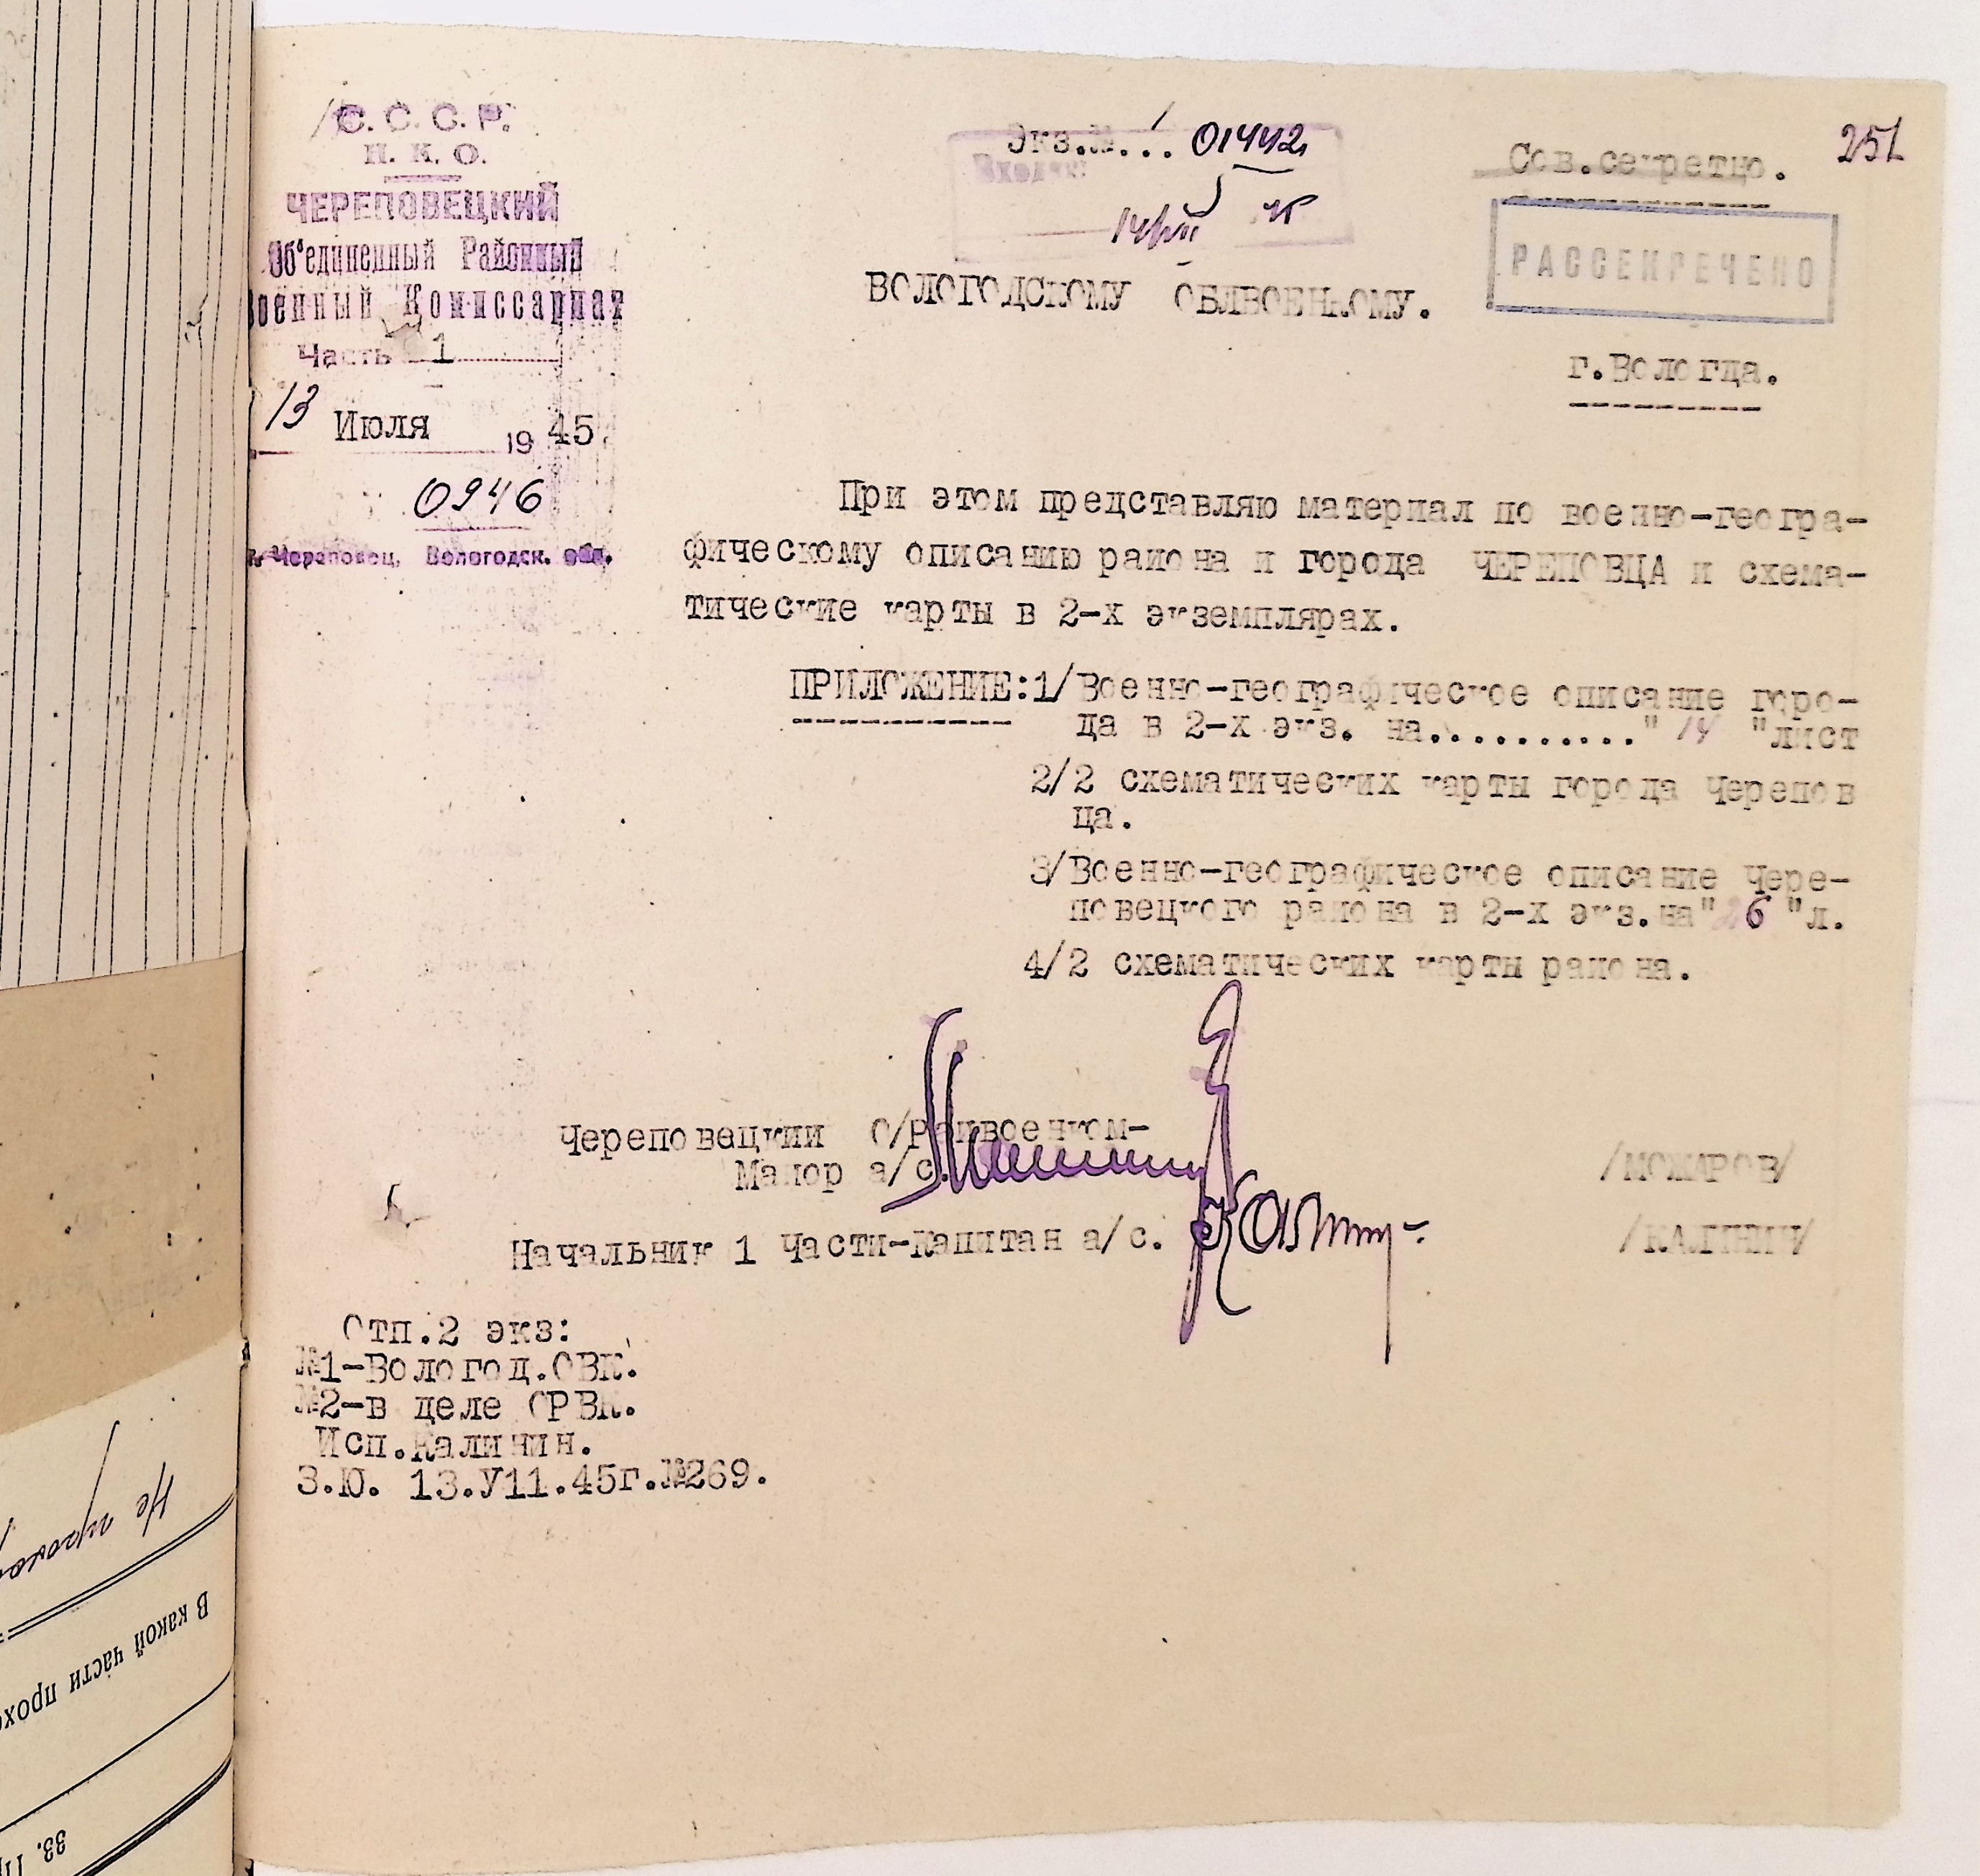 С. С. С. Р.
Н. К. О.
ЧЕРЕПОВЕЦКИЙ
Об'единенный Районный
Военный Комиссариат
Часть 1
13 Июля 1945.
0946
г. Череповец, Вологодск. обл.
Экз.№... 01442
Входящ
Сов.секретно.
251
РАССЕКРЕЧЕНО
ВОЛОГОДСКОМУ ОБЛВОЕНКОМУ.
г.Вологда.
При этом представляю материал по военно-геогра-
фическому описанию района и города ЧЕРЕПОВЦА и схема-
тические карты в 2-х экземплярах.
ПРИЛОЖЕНИЕ:1/Военно-географическое описание горо-
да в 2-х экз. на.........." 14 "лист
2/2 схематических карты города Черепов
ца.
3/Военно-географическое описание Чере-
повецкого района в 2-х экз.на"26"л.
4/2 схематических карты района.
Череповецкий О/Райвоенком-
Майор а/с.
/МОЖАРОВ/
Начальник 1 части-капитан а/с.
/КАЛИНИЧ/
Отп.2 экз:
№1-Вологод.ОВК.
№2-в деле ОРВК.
Исп.Калинин.
З.Ю. 13.У11.45г.№269.
Не
В какой части прохо
33. П